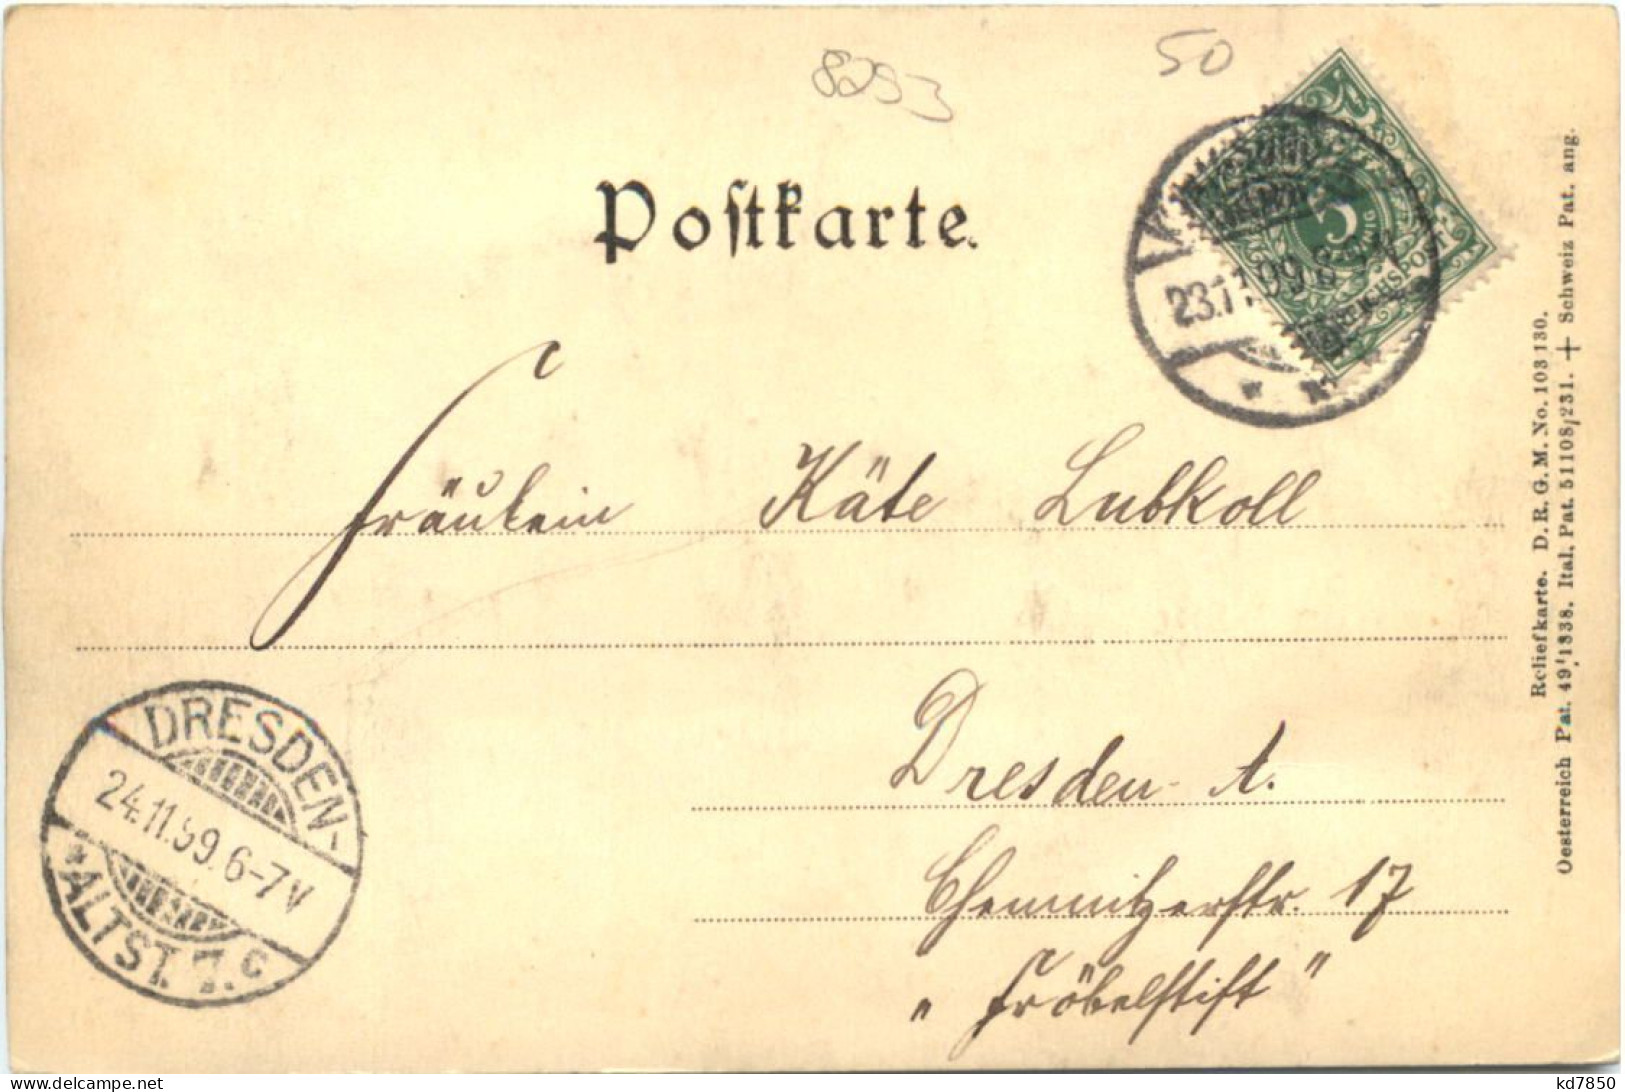 8293
50
Postkarte.
5
REICHSPOST
23.11.99. 8-9 N
Fräulein Käte Lubkoll
Dresden-A.
Chemnitzerstr. 17
"Fröbelstift"
DRESDEN-
24.11.99. 6-7V
*ALTST. 7.c
Reliefkarte. D. R. G. M. No. 103130.
Oesterreich Pat. 49/1338. Ital. Pat. 51108/231. + Schweiz Pat. ang.
kd7850